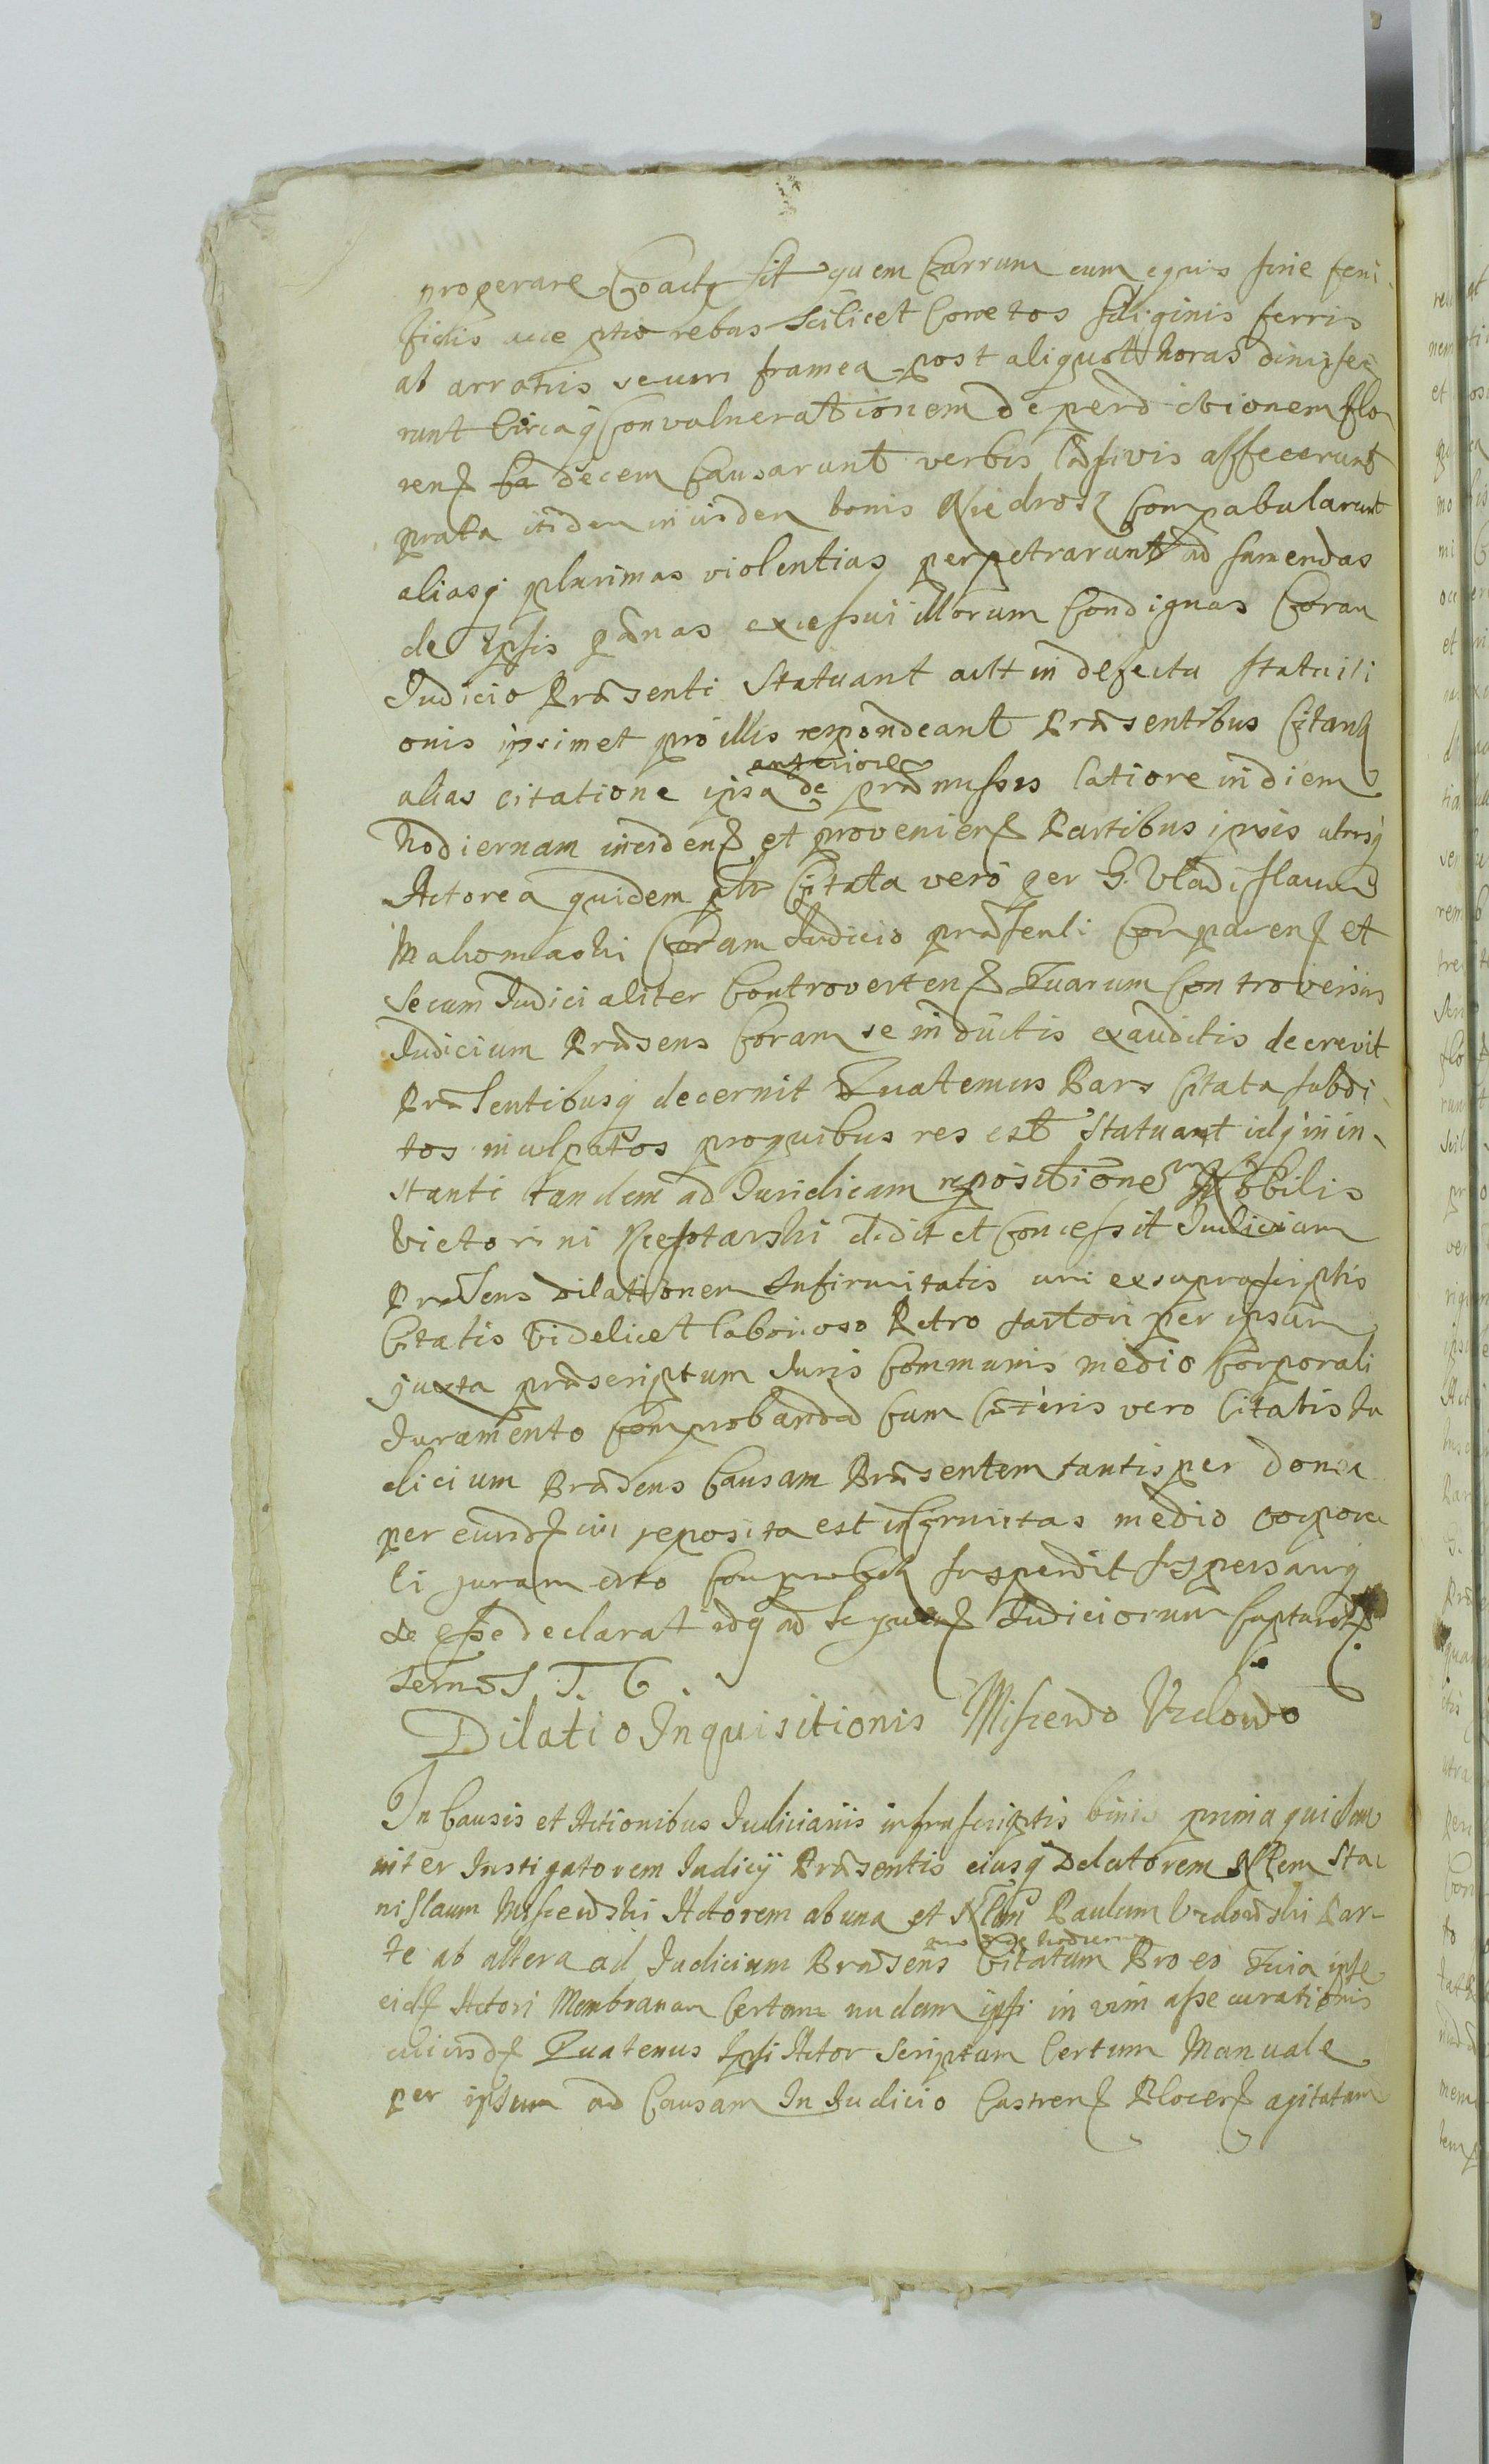 properare Coactq sit quem Carrum cum equis sine feni
sidis acceptis rebus Scilicet Correctos siliginis ferris
ab arratris secum framea post aliquot horas dimise-
runt Circaq Convulnerationem deperditionem flo
ren decem Causarunt verbis læsivis affecerunt
prata itidem in iisdem bonis Niedrosz Compabularunt
aliasq plurimas violentias perpetrarunt ad sumendas
de Ipsis pænas excessui illorum Condignas Coram
Judicio Præsenti Statuant aut in defectu statuiti
onis ipsimet pro illis respondeant Præsentibus Citan
anteriore
alias citatione ipsa de præmissis latiore in diem
hodiernam inciden et provenien Partibus ipsis utrisq
Actorea quidem Citata vero per G. Vladislaum
Mahomaski Coram Judicio præsenti Comparen et
secum Judicialiter Controverten Quarum Controversiis
Judicium Præsens Coram se inductis exauditis decrevit
Præsentibusq decernit Quatenus Pars Citata subdi
tos inculpatos pro quibus res est Statuant idq in in-
stanti tandem ad Juridicam repositionem Nobilis
Victorini dedit et Concessit Judicium
Præsens Dilationem Infirmitatis uni ex suprascriptis
Citatis Videlicet laborioso Petro sartori per ipsum
juxta præscriptum Juris Communis medio Corporali
Juramento Comprobanda Cum Cæteris vero Citatis Ju
dicium Præsens Causam Præsentem tantisper donec
per eund cui reposita est infirmitas medio corpora
li juramento Comprobet suspendit suspensamq
de esse declarat idq ad sequen Judiciorum Captur
Term
Dilatio Inquisitionis Miscewo Uzdowo
In Causis et Actionibus Judiciariis infrascriptis binis prima quidem
inter Instigatorem Judicij Præsentis eiusq Delatorem Nlem Sta
nislaum Miszewski Actorem ab una et Nlem Paulum Uzdowski Par-
te ab altera ad Judicium Præsens Citatum Pro eo Quia ipse
eid Actori Membranam Certam nudam ipsi in vim assecurationis
cuiusd Quatenus Ipsi Actor Scriptum Certum Manuale
per ipsum ad Causam In Judicio Castren Plocen agitatam